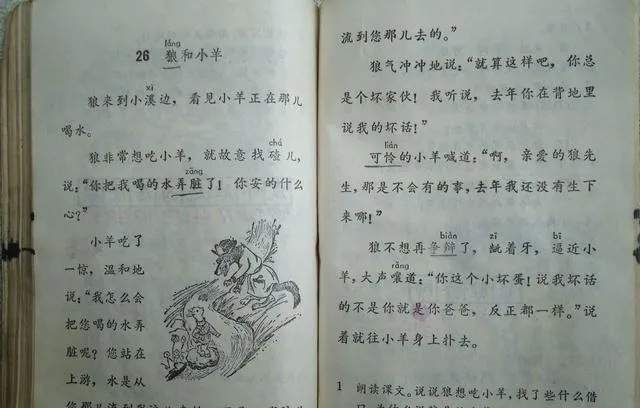 26 狼和小羊
láng
狼来到小溪边，看见小羊正在那儿
xī
喝水。
狼非常想吃小羊，就故意找碴儿，
chá
说：“你把我喝的水弄脏了！你安的什么
zāng
心？”
小羊吃了
一惊，温和地
说：“我怎么会
把您喝的水弄
脏呢？您站在
上游，水是从
流到您那儿去的。”
狼气冲冲地说：“就算这样吧，你总
是个坏家伙！我听说，去年你在背地里
说我的坏话！”
lián
可怜的小羊喊道：“啊，亲爱的狼先
生，那是不会有的事，去年我还没有生下
来哪！”
biàn zī bī
狼不想再争辩了，龇着牙，逼近小
rǎng
羊，大声嚷道：“你这个小坏蛋！说我坏话
的不是你就是你爸爸，反正都一样。”说
着就往小羊身上扑去。
1 朗读课文。说说狼想吃小羊，找了些什么借